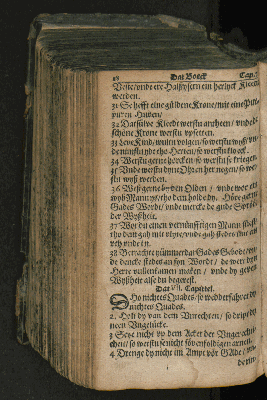 18 Dat Boeck Cap.
Veste / vnde ere Halsyseren ein herlyck Kleedt
werden.
31 Se hefft eine güldene Krone / mit eine
puren Huuen /
32 Datsülve Kleedt werstu antheen / vnde de
schöne Krone werstu vpsetten.
33 Leve Kindt / wultu volgen / so werstu wyß / vnde
34 Werstu gerne horeken / so werstu krigen
35 Vnde werstu dyne Ohren her negen / so wer-
stu wyß werden.
36 Weß gerne by den Olden / vnde wor ein
wyß Mann ys / tho dem holde dy. Höre gerne
Gades Wordt / vnde mercke de gude Spröke
der Wyßheit.
37 Wor du einen vernünfftigen Mann süst /
tho dem gah mit vlyte / vnde gah stedes
vth vnde in.
38 Betrachte jümmerdar Gades Gebode / vnde
dencke stedes an syn Wordt / de wert dyn
Herte vullenkamen maken / vnde dy geven
Wyßheit alse du begerest.
Dat VII. Capittel.
Do nichtes Quades / so wedderfahret dy
nichtes Quades.
2. Holt dy van dem Vnrechten / so dript dy
neen Vngelücke.
3 Seye nicht vp dem Acker der Vngerechti-
cheit / so werstu se nicht sövenfoldigen arnen.
4 Drenge dy nicht im Ampt vör Gade / vnde